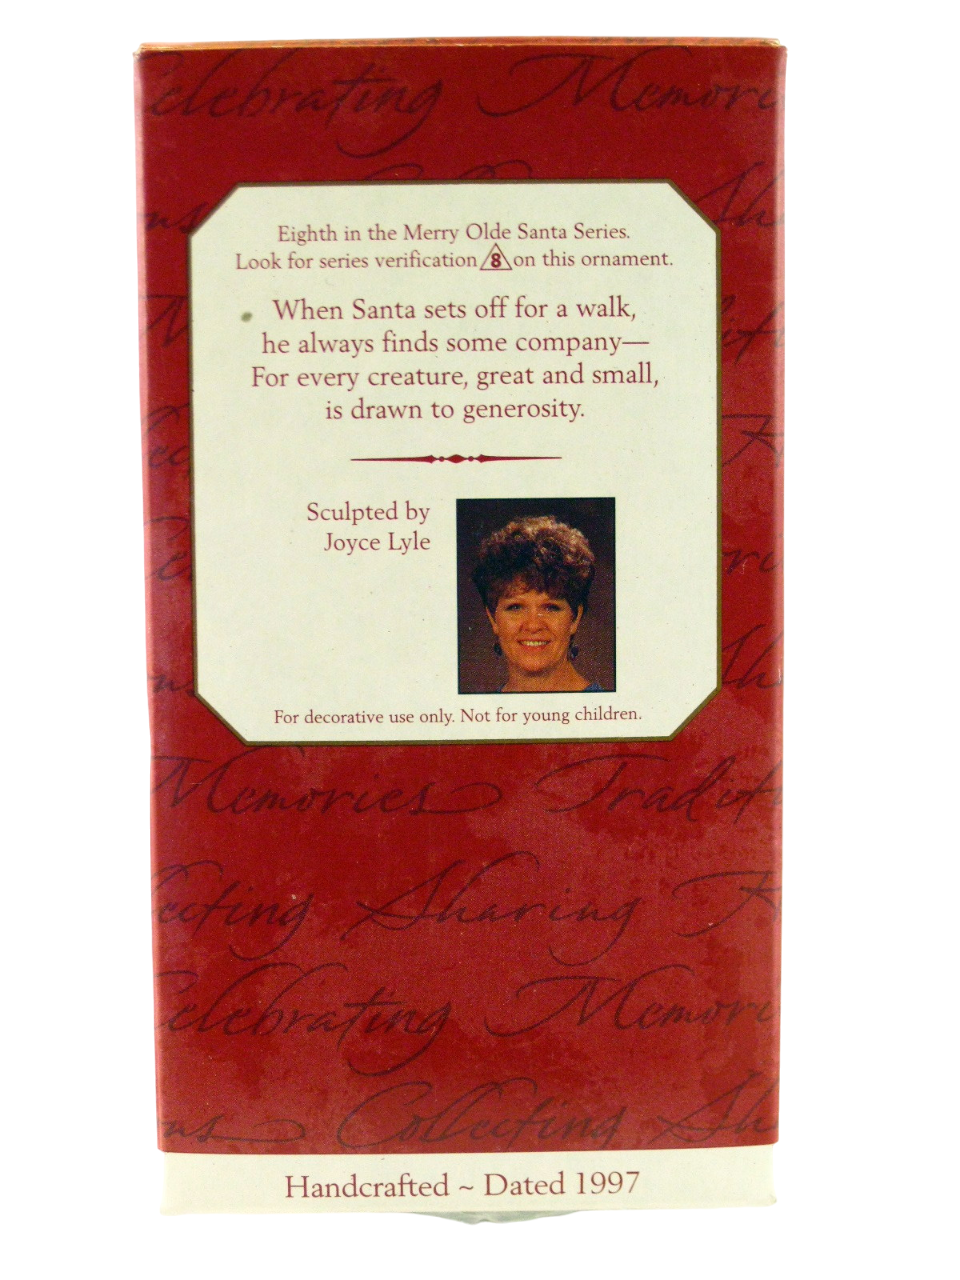 Celebrating Memori
Eighth in the Merry Olde Santa Series.
Look for series verification 8 on this ornament.
When Santa sets off for a walk,
he always finds some company—
For every creature, great and small,
is drawn to generosity.
Sculpted by
Joyce Lyle
For decorative use only. Not for young children.
Memories Tradit
ecting Sharing
Celebrating Memori
ons Collecting Sh
Handcrafted ~ Dated 1997